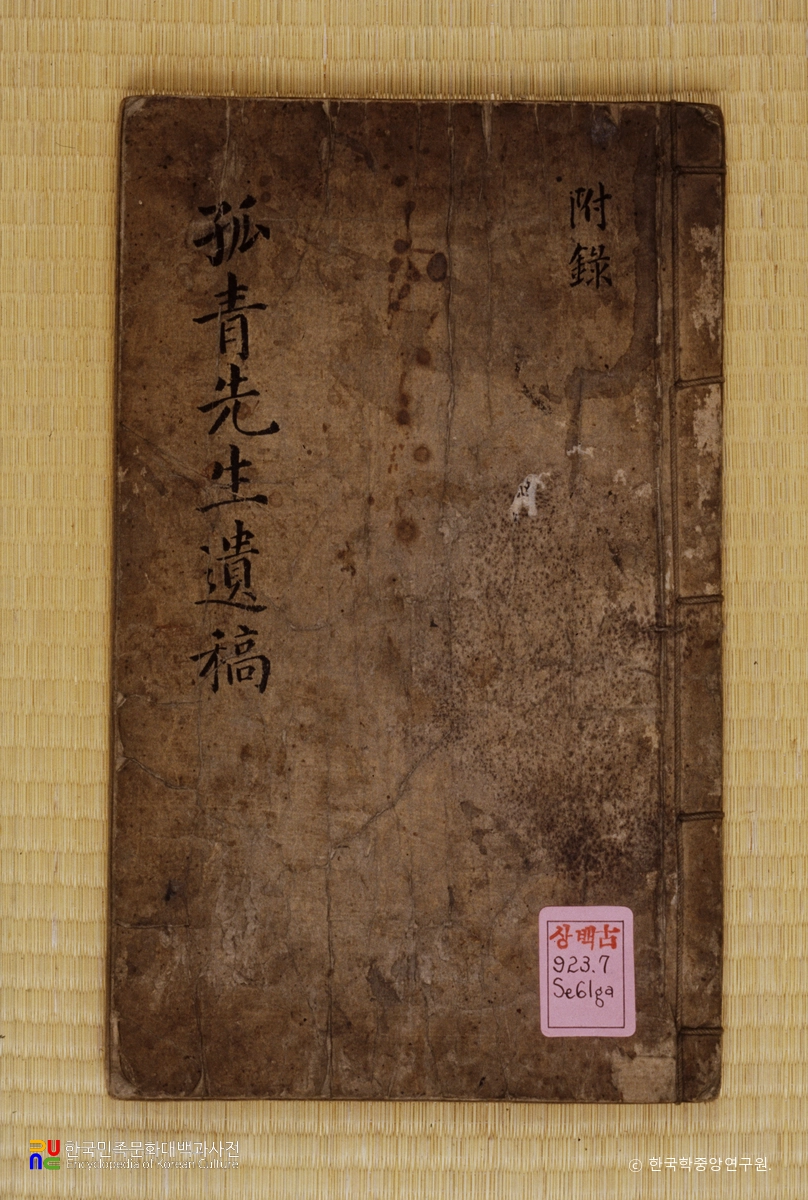 附錄
孤青先生遺稿
상백古
923.7
Se61ga
한국민족문화대백과사전
Encyclopedia of Korean Culture
© 한국학중앙연구원.